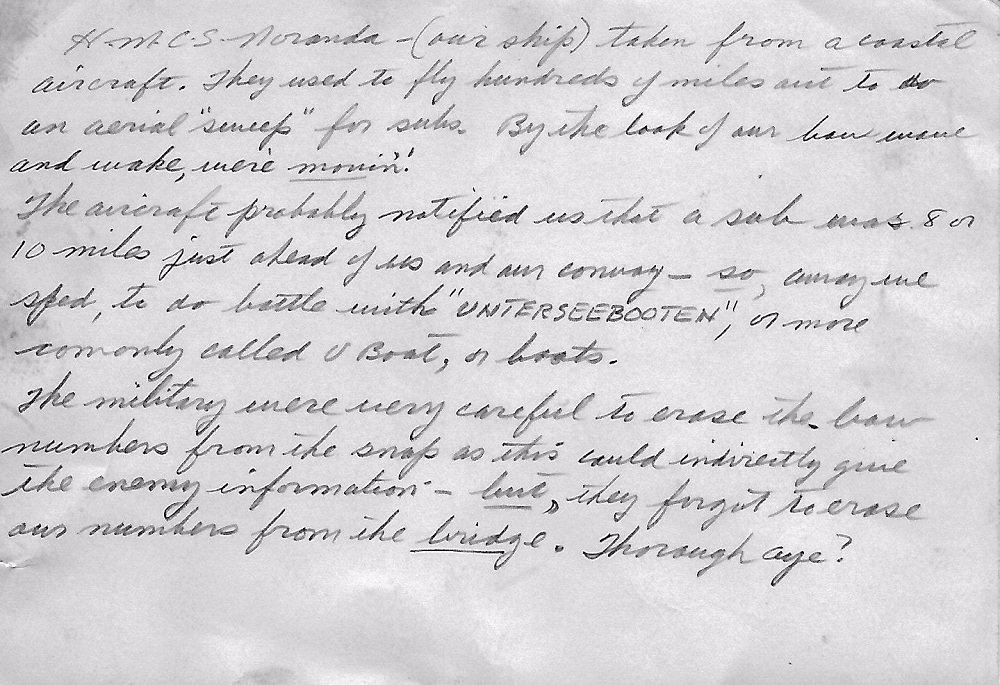 H.M.C.S. Noranda - (our ship) taken from a coastal
aircraft. They used to fly hundreds of miles out to do
an aerial "sweep" for subs. By the look of our bow wave
and wake, we're movin'!
The aircraft probably notified us that a sub was 8 or
10 miles just ahead of us and our convoy - so, away we
sped, to do battle with "UNTERSEEBOOTEN", or more
comonly called U Boat, or boats.
The military were very careful to erase the bow
numbers from the snap as this could indirectly give
the enemy information - but, they forgot to erase
our numbers from the bridge. Thorough aye?